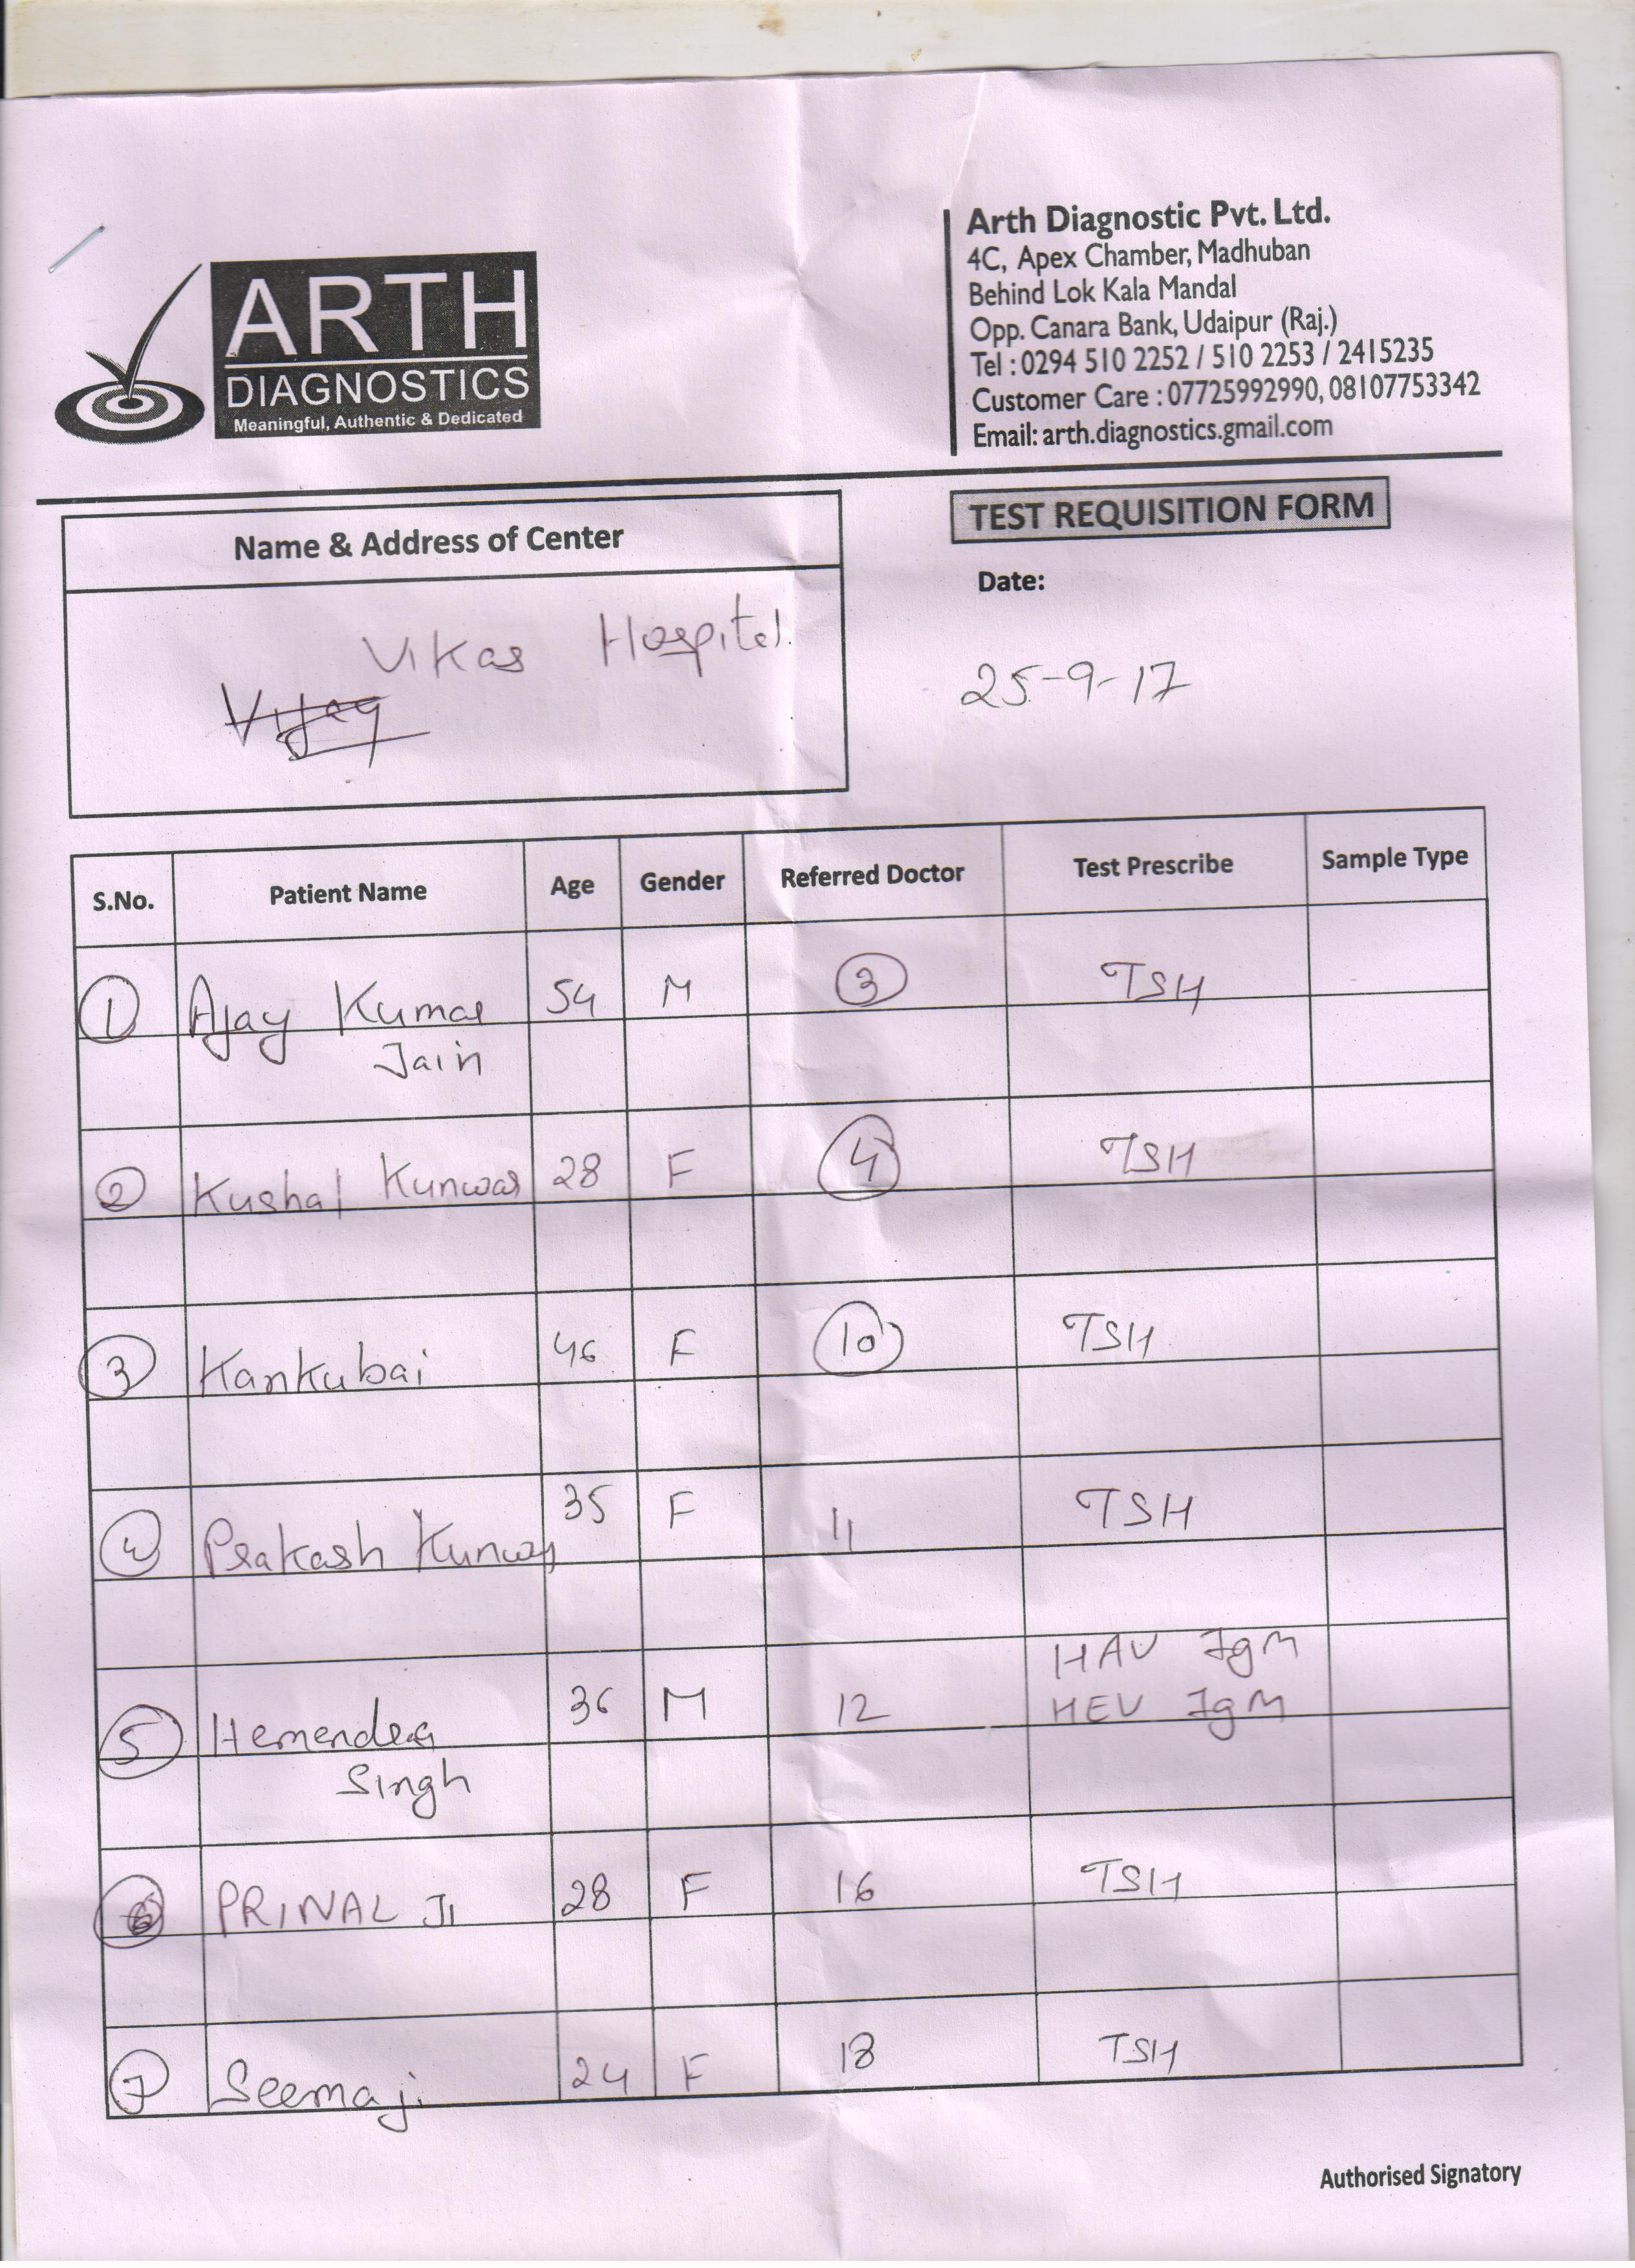 ARTH
DIAGNOSTICS
Meaningful, Authentic & Dedicated
Arth Diagnostic Pvt. Ltd.
4C, Apex Chamber, Madhuban
Behind Lok Kala Mandal
Opp. Canara Bank, Udaipur (Raj.)
Tel : 0294 510 2252 / 510 2253 / 2415235
Customer Care : 07725992990, 08107753342
Email: arth.diagnostics.gmail.com
Name & Address of Center
Vikas Hospital.
Vijay
TEST REQUISITION FORM
Date:
25-9-17
S.No. Patient Name Age Gender Referred Doctor Test Prescribe Sample Type
1 Ajay Kumar 54 M 3 TSH
Jain
2 Kushal Kunwar 28 F 4 TSH
3 Kankubai 46 F 10 TSH
4 Prakash Kunwar 35 F 11 TSH
HAV IgM
5 Hemendra 36 M 12 HEV IgM
Singh
6 PRINAL JI 28 F 16 TSH
7 Seema ji 24 F 18 TSH
Authorised Signatory